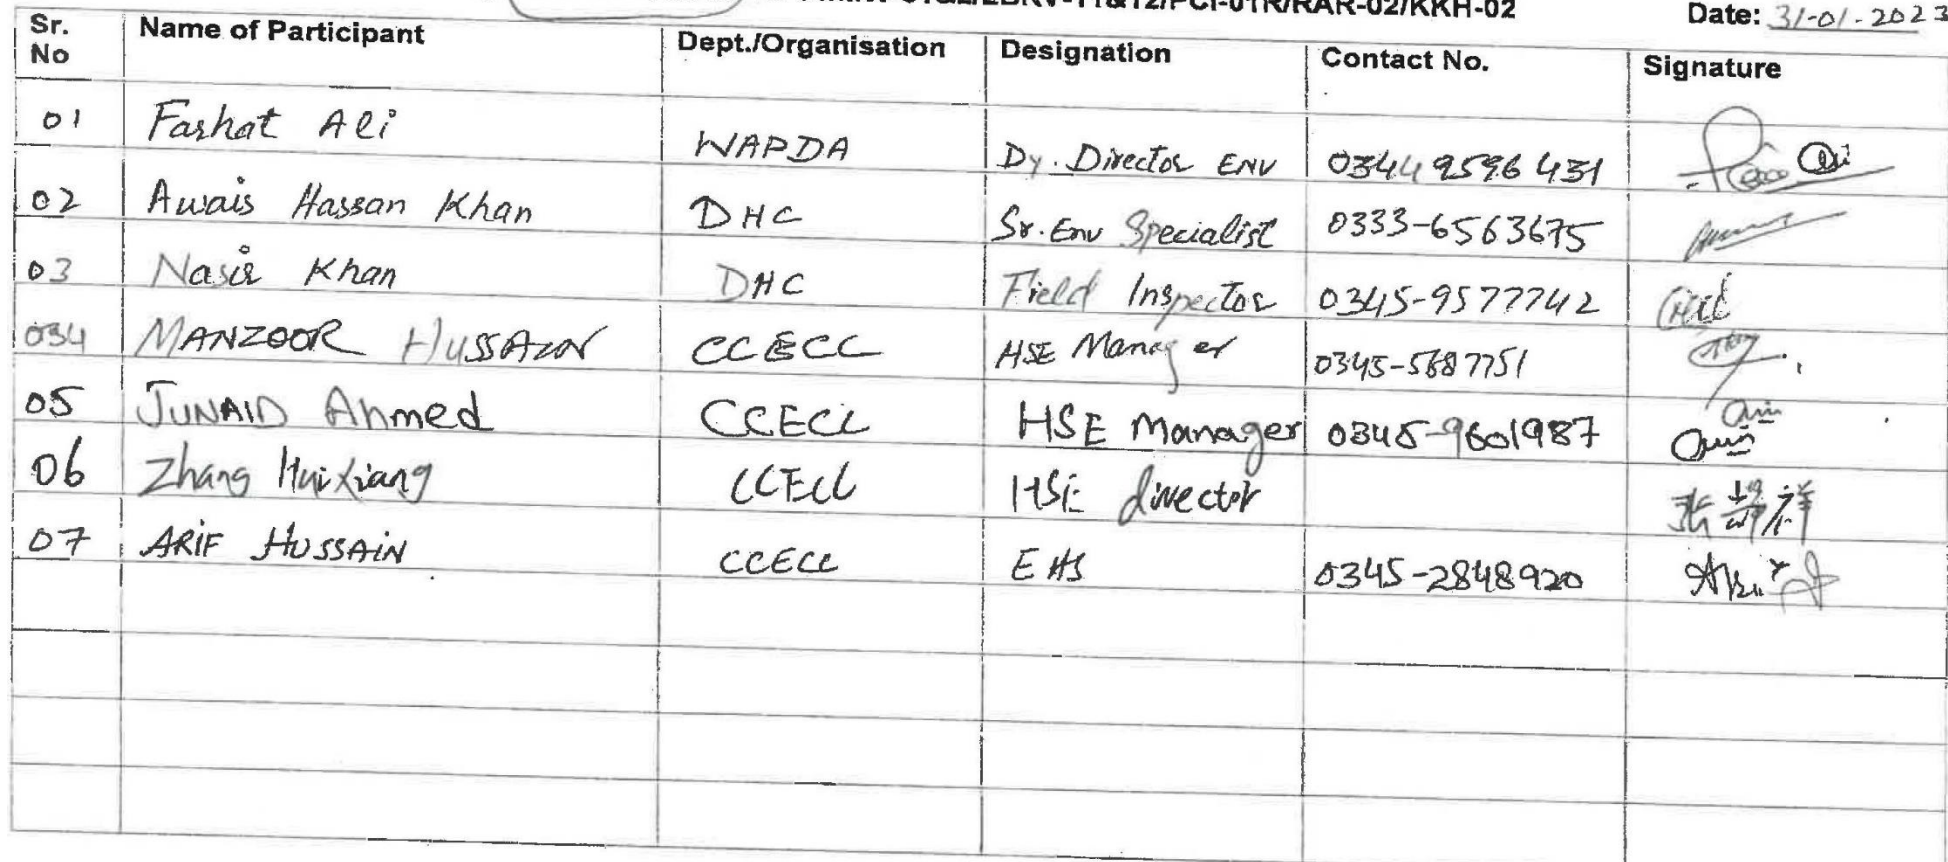 /PCI-01R/RAR-02/KKH-02 Date: 31-01-2023
Sr. No Name of Participant Dept./Organisation Designation Contact No. Signature
01 Farhat Ali WAPDA Dy. Director ENV 0344 9596 431
02 Awais Hassan Khan DHC Sr. Env Specialist 0333-6563675
03 Nasir Khan DHC Field Inspector 0345-9577742
034 MANZOOR HUSSAIN CCECC HSE Manager 0345-5687751
05 JUNAID Ahmed CCECC HSE Manager 0345-9601987
06 Zhang Huixiang CCECC HSE director
07 ARIF HUSSAIN CCECC EHS 0345-2848920